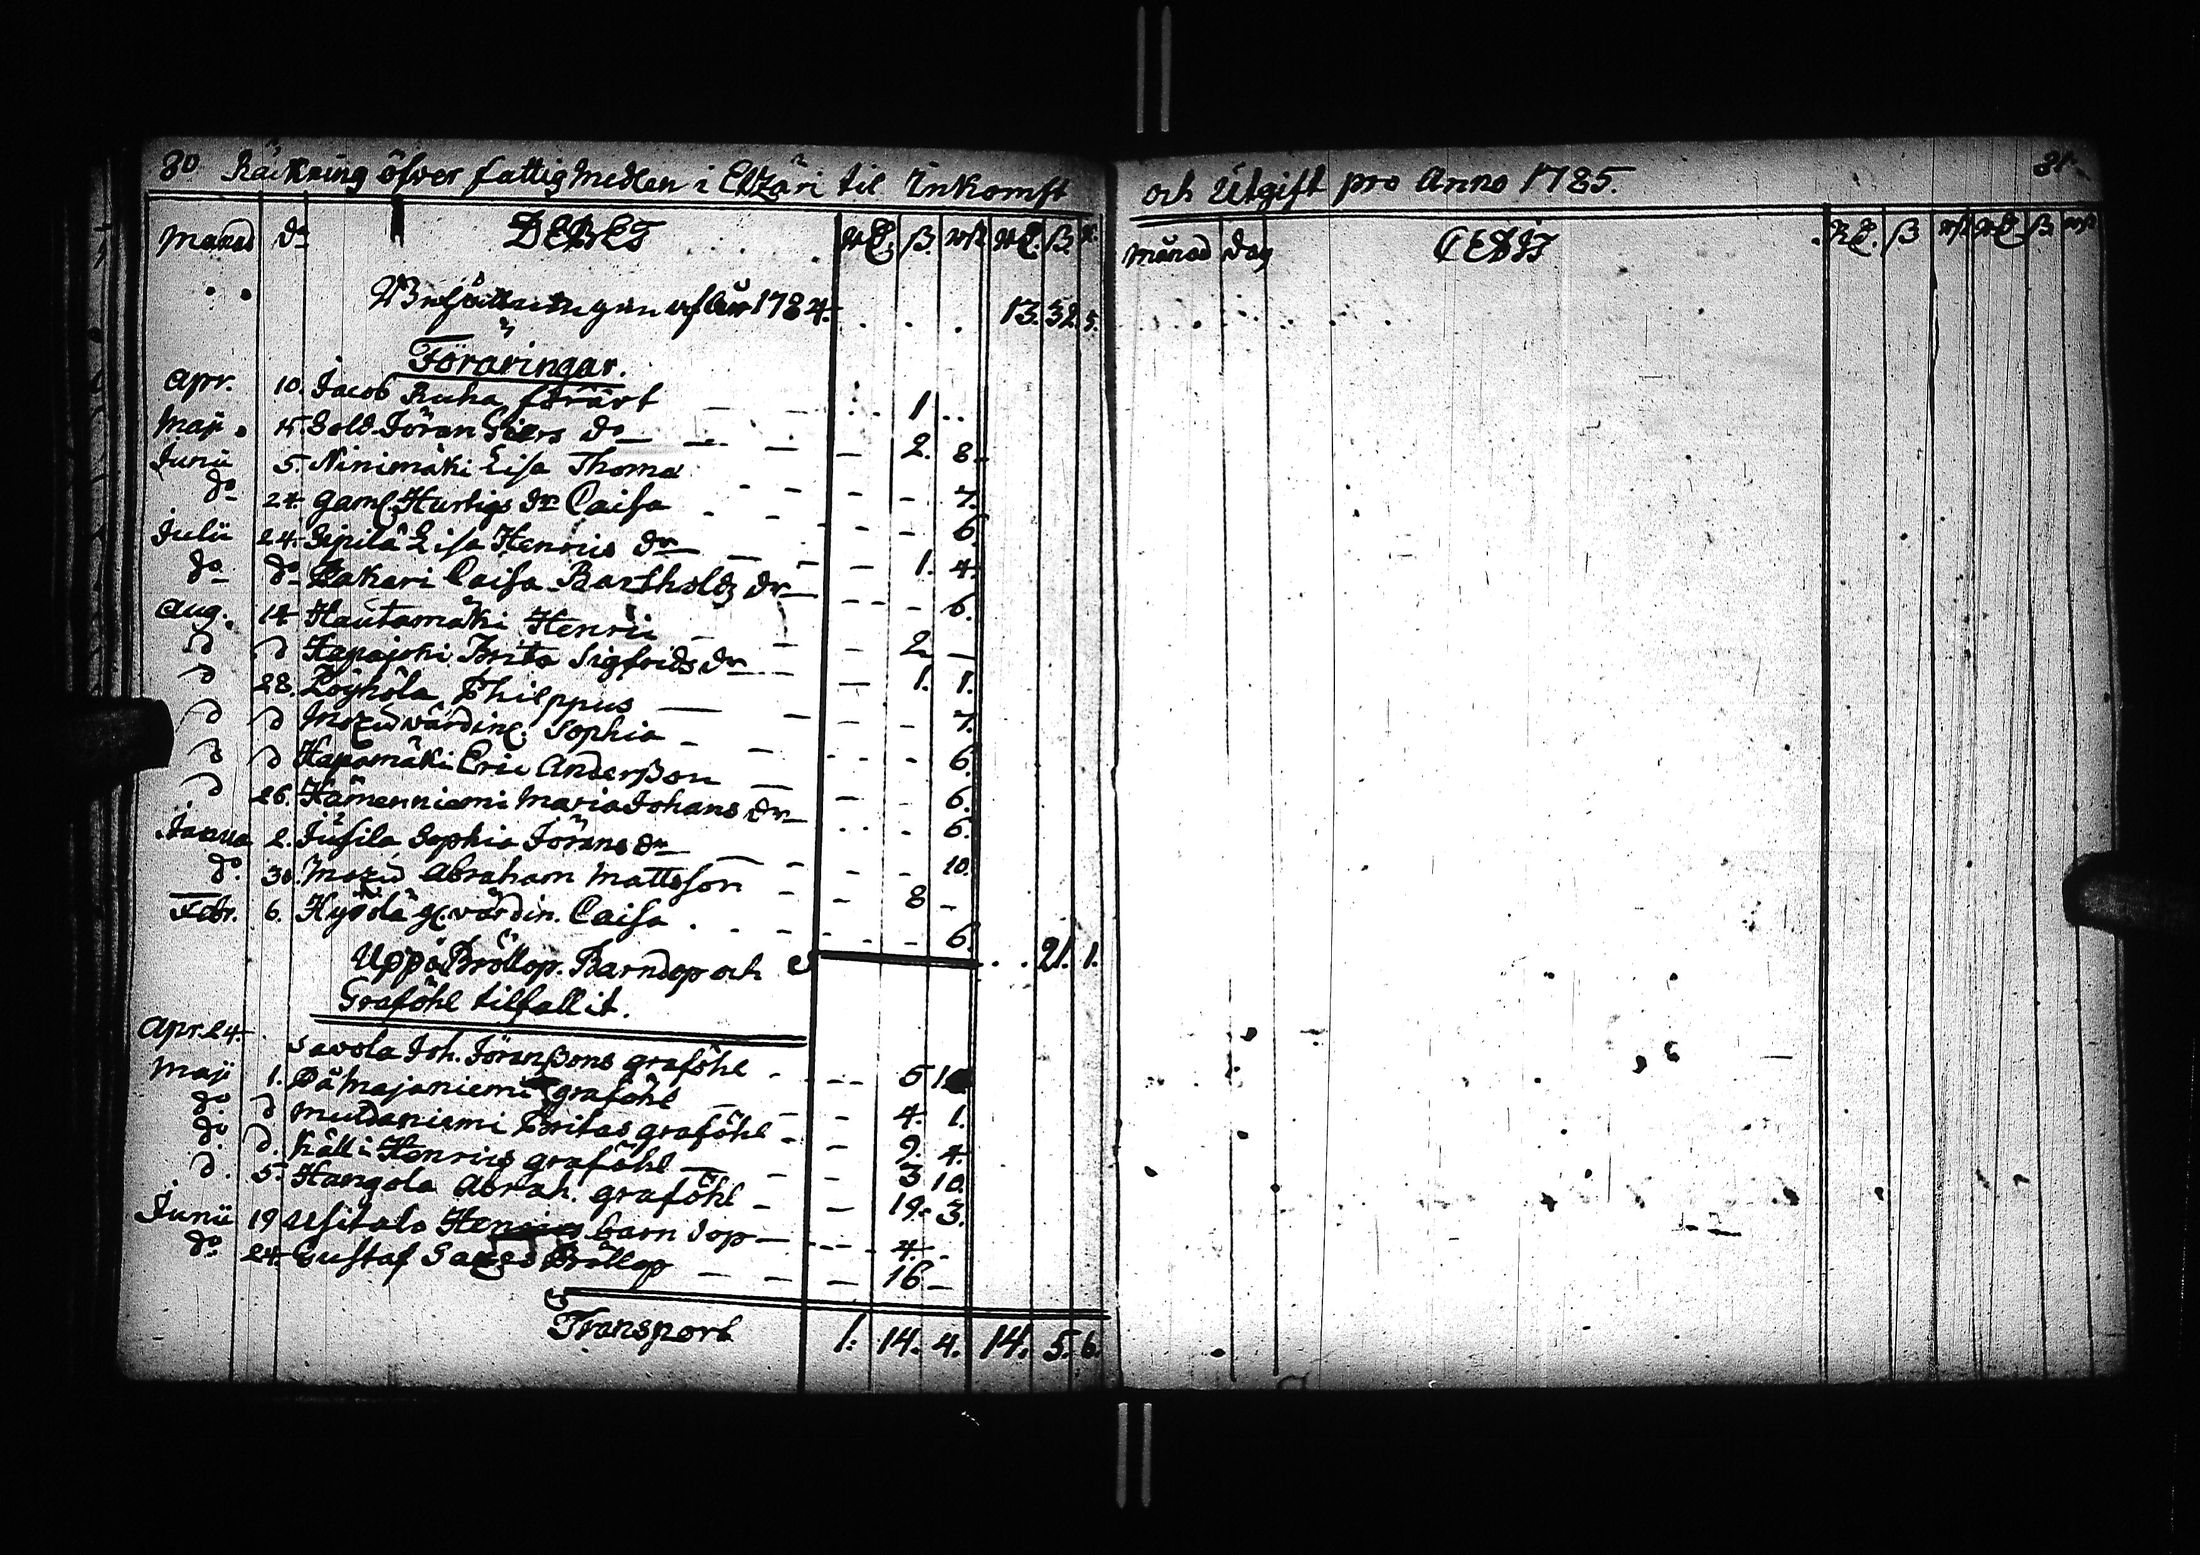 80 Räkning öfver fattigmedlen i Etzäri til Inkomst
Månad dn DEBET RE. ß. rst RE. ß. r.
Behållningen af år 1784. 13. 32. 5.
Föräringar.
Apr. 10. Jacob Ruha förärt 1
Maji 15. Sold. Jöran Giers do 2. 8.
Junii 5. Ninimäki Lisa Thoma 7.
do 24. Gaml. Hurtigs dr Caisa 6.
Julii 24. Sipilä Lisa Henrics dr 1. 4.
do do Zakari Caisa Bartholds dr 6.
Aug. 14 Hautamäki Henric 2
d d Hapajoki Brita Sigfrids dr 1. 1.
d 28. Pöyhölä Philppus 7.
d d värdin. Sophia 6.
d d Hapamäki Eric Anderßon 6.
d 26. Hämenniemi Maria Johans dr 6.
Janua 2. Jusila Sophia Jörans dr 10.
do. 30. Abraham Mattsson 8
Febr. 6. gl. värdin. Caisa 6. 21. 1.
Uppå Bröllop. Barndop och
Graföhl tilfallit.
Apr. 24. Savola Joh. Jöranßons graföhl 5 1
Maji 1. Pämajaniemi graföhl 4. 1.
do. d Muldaniemi Britas graföhl 9. 4.
do d. Källi Henrics graföhl 3 10.
d. 5. Hangola Abrah. graföhl 19. 3.
Junii 19 Usitalo barn dop 4.
do 24. Gustaf Bröllop 16.
Transport 1. 14. 4. 14. 5. 6.
och Utgift pro Anno 1785. 81.
Månad Dag CREDIT RE. ß rst RE. ß. rst